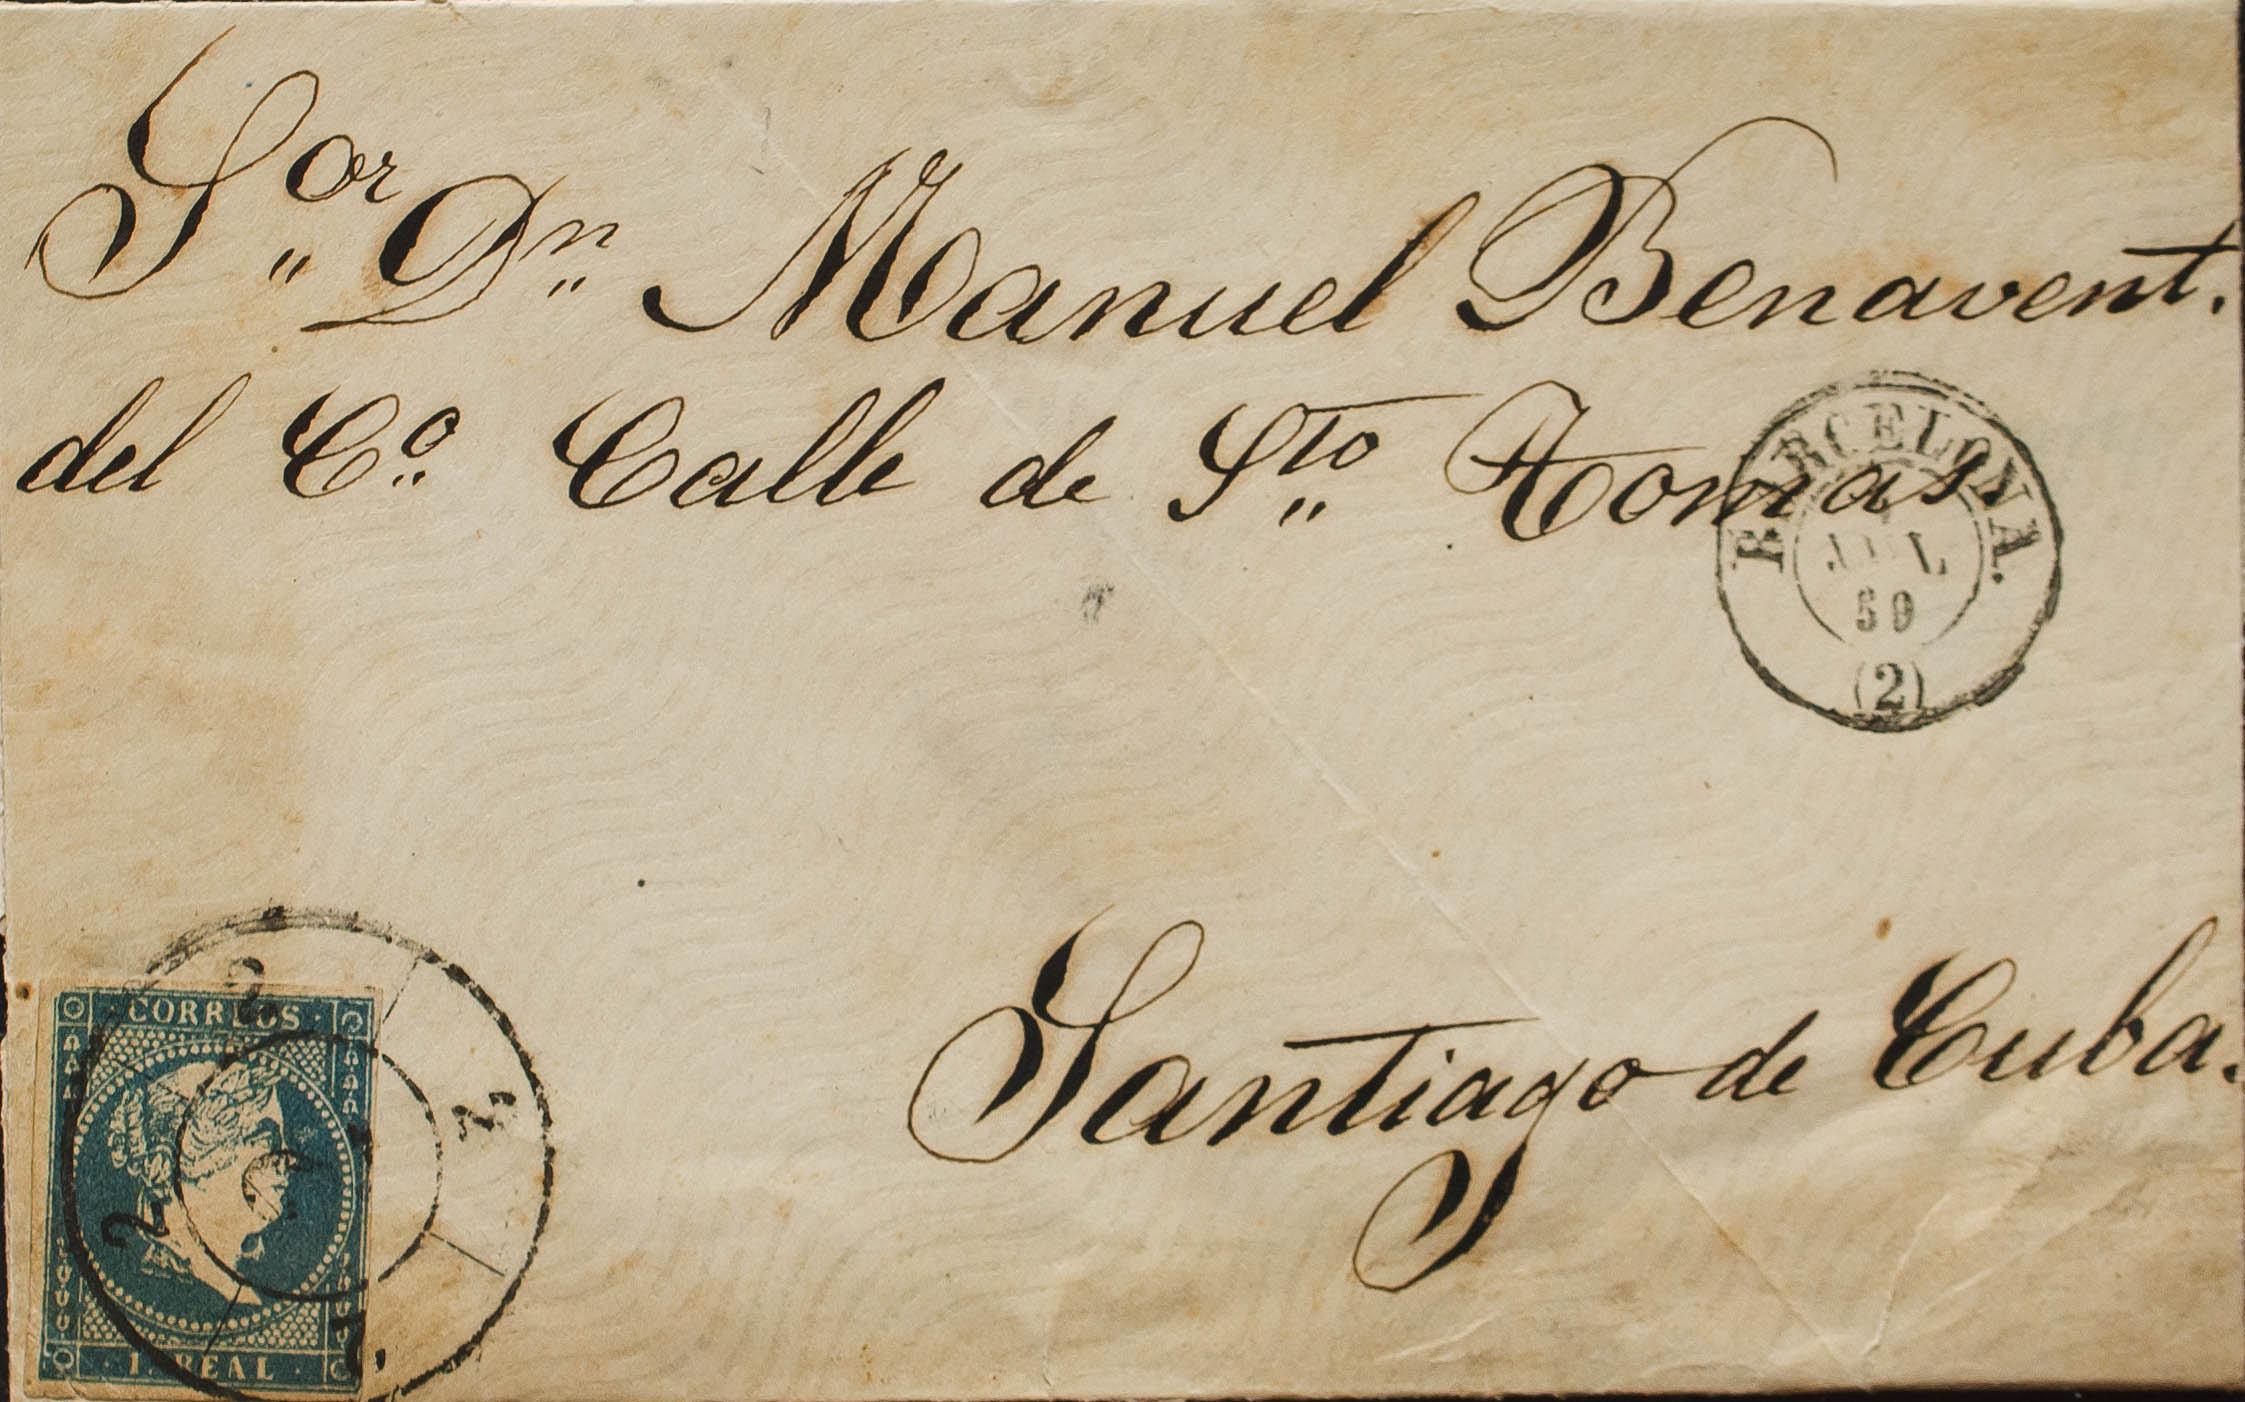 Sor Dn Manuel Benavent.
del Co. Calle de Sto Tomas.
BARCELONA.
JUL
59
(2)
Santiago de Cuba.
CORREOS
1. REAL
2
2
2
2